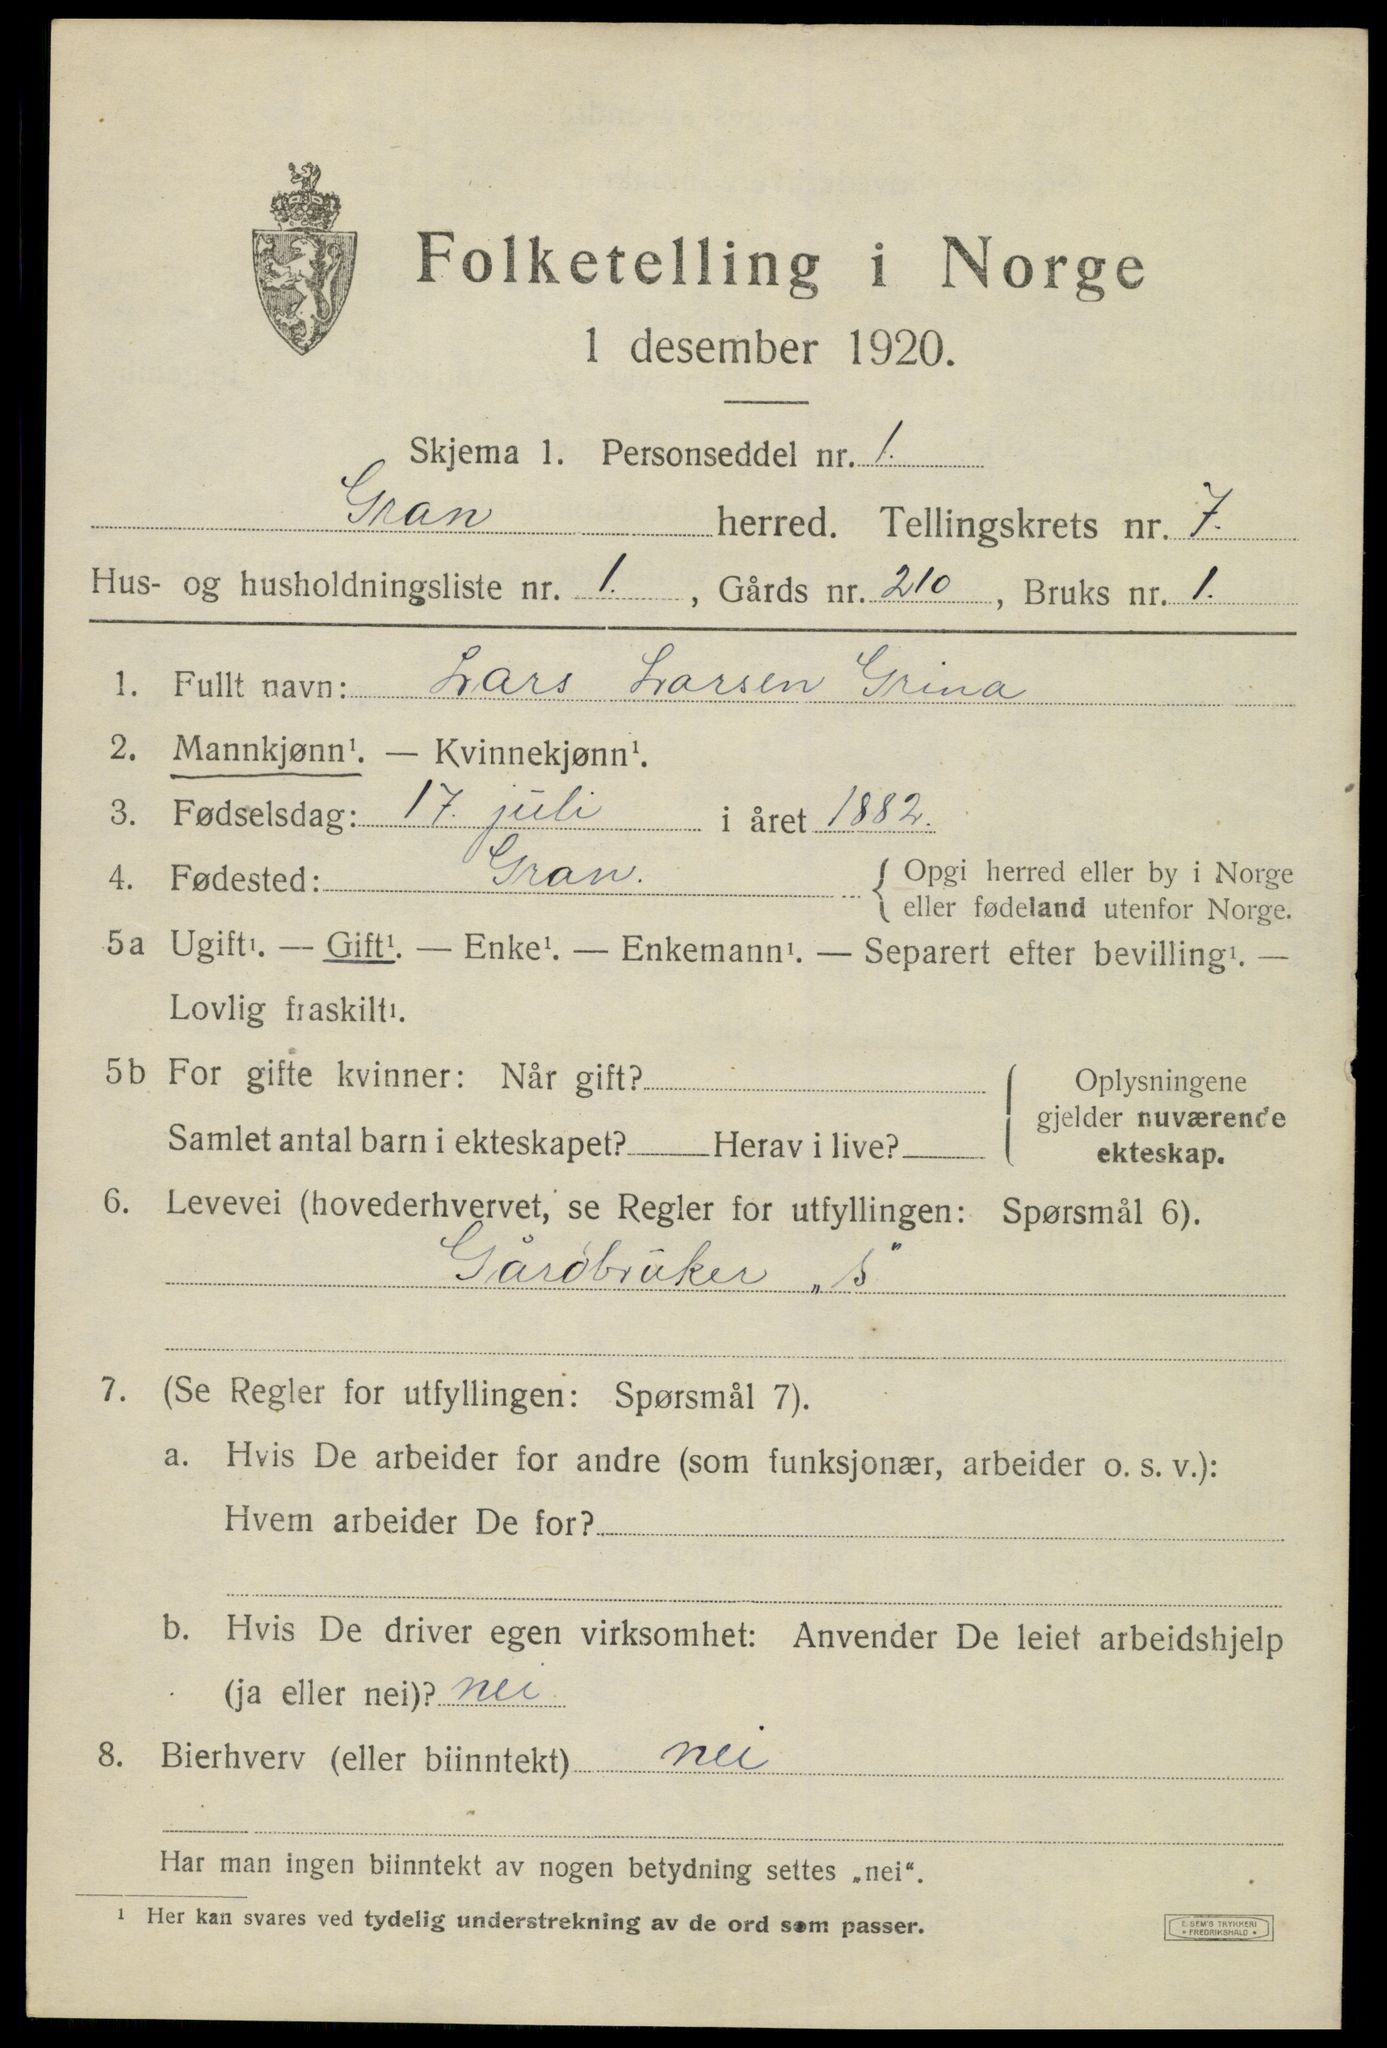 Folketelling i Norge
1 desember 1920.
Skjema 1. Personseddel nr. 1.
Gran herred. Tellingskrets nr. 7.
Hus- og husholdningsliste nr. 1., Gårds nr. 210, Bruks nr. 1.
1. Fullt navn: Lars Larsen Grina
2. Mannkjønn¹. — Kvinnekjønn¹.
3. Fødselsdag: 17. juli i året 1882.
4. Fødested: Gran. { Opgi herred eller by i Norge
eller fødeland utenfor Norge.
5a Ugift¹. — Gift¹. — Enke¹. — Enkemann¹. — Separert efter bevilling¹. —
Lovlig fraskilt¹.
5b For gifte kvinner: Når gift?
Samlet antal barn i ekteskapet? Herav i live?
Oplysningene
gjelder nuværende
ekteskap.
6. Levevei (hovederhvervet, se Regler for utfyllingen: Spørsmål 6).
Gårdbruker „s“
7. (Se Regler for utfyllingen: Spørsmål 7).
a. Hvis De arbeider for andre (som funksjonær, arbeider o. s. v.):
Hvem arbeider De for?
b. Hvis De driver egen virksomhet: Anvender De leiet arbeidshjelp
(ja eller nei)? nei
8. Bierhverv (eller biinntekt) nei
Har man ingen biinntekt av nogen betydning settes „nei“.
¹ Her kan svares ved tydelig understrekning av de ord som passer.
E. SEM'S TRYKKERI
• FREDRIKSHALD •